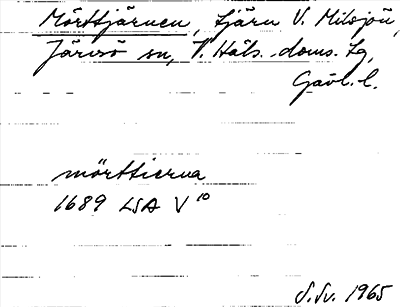 Mörttjärnen, tjärn V. Milsjön,
Järvsö sn, V. Häls. doms. tg,
Gävl. l.
mörttierna
1689 LSA V 10
S. Sv. 1965